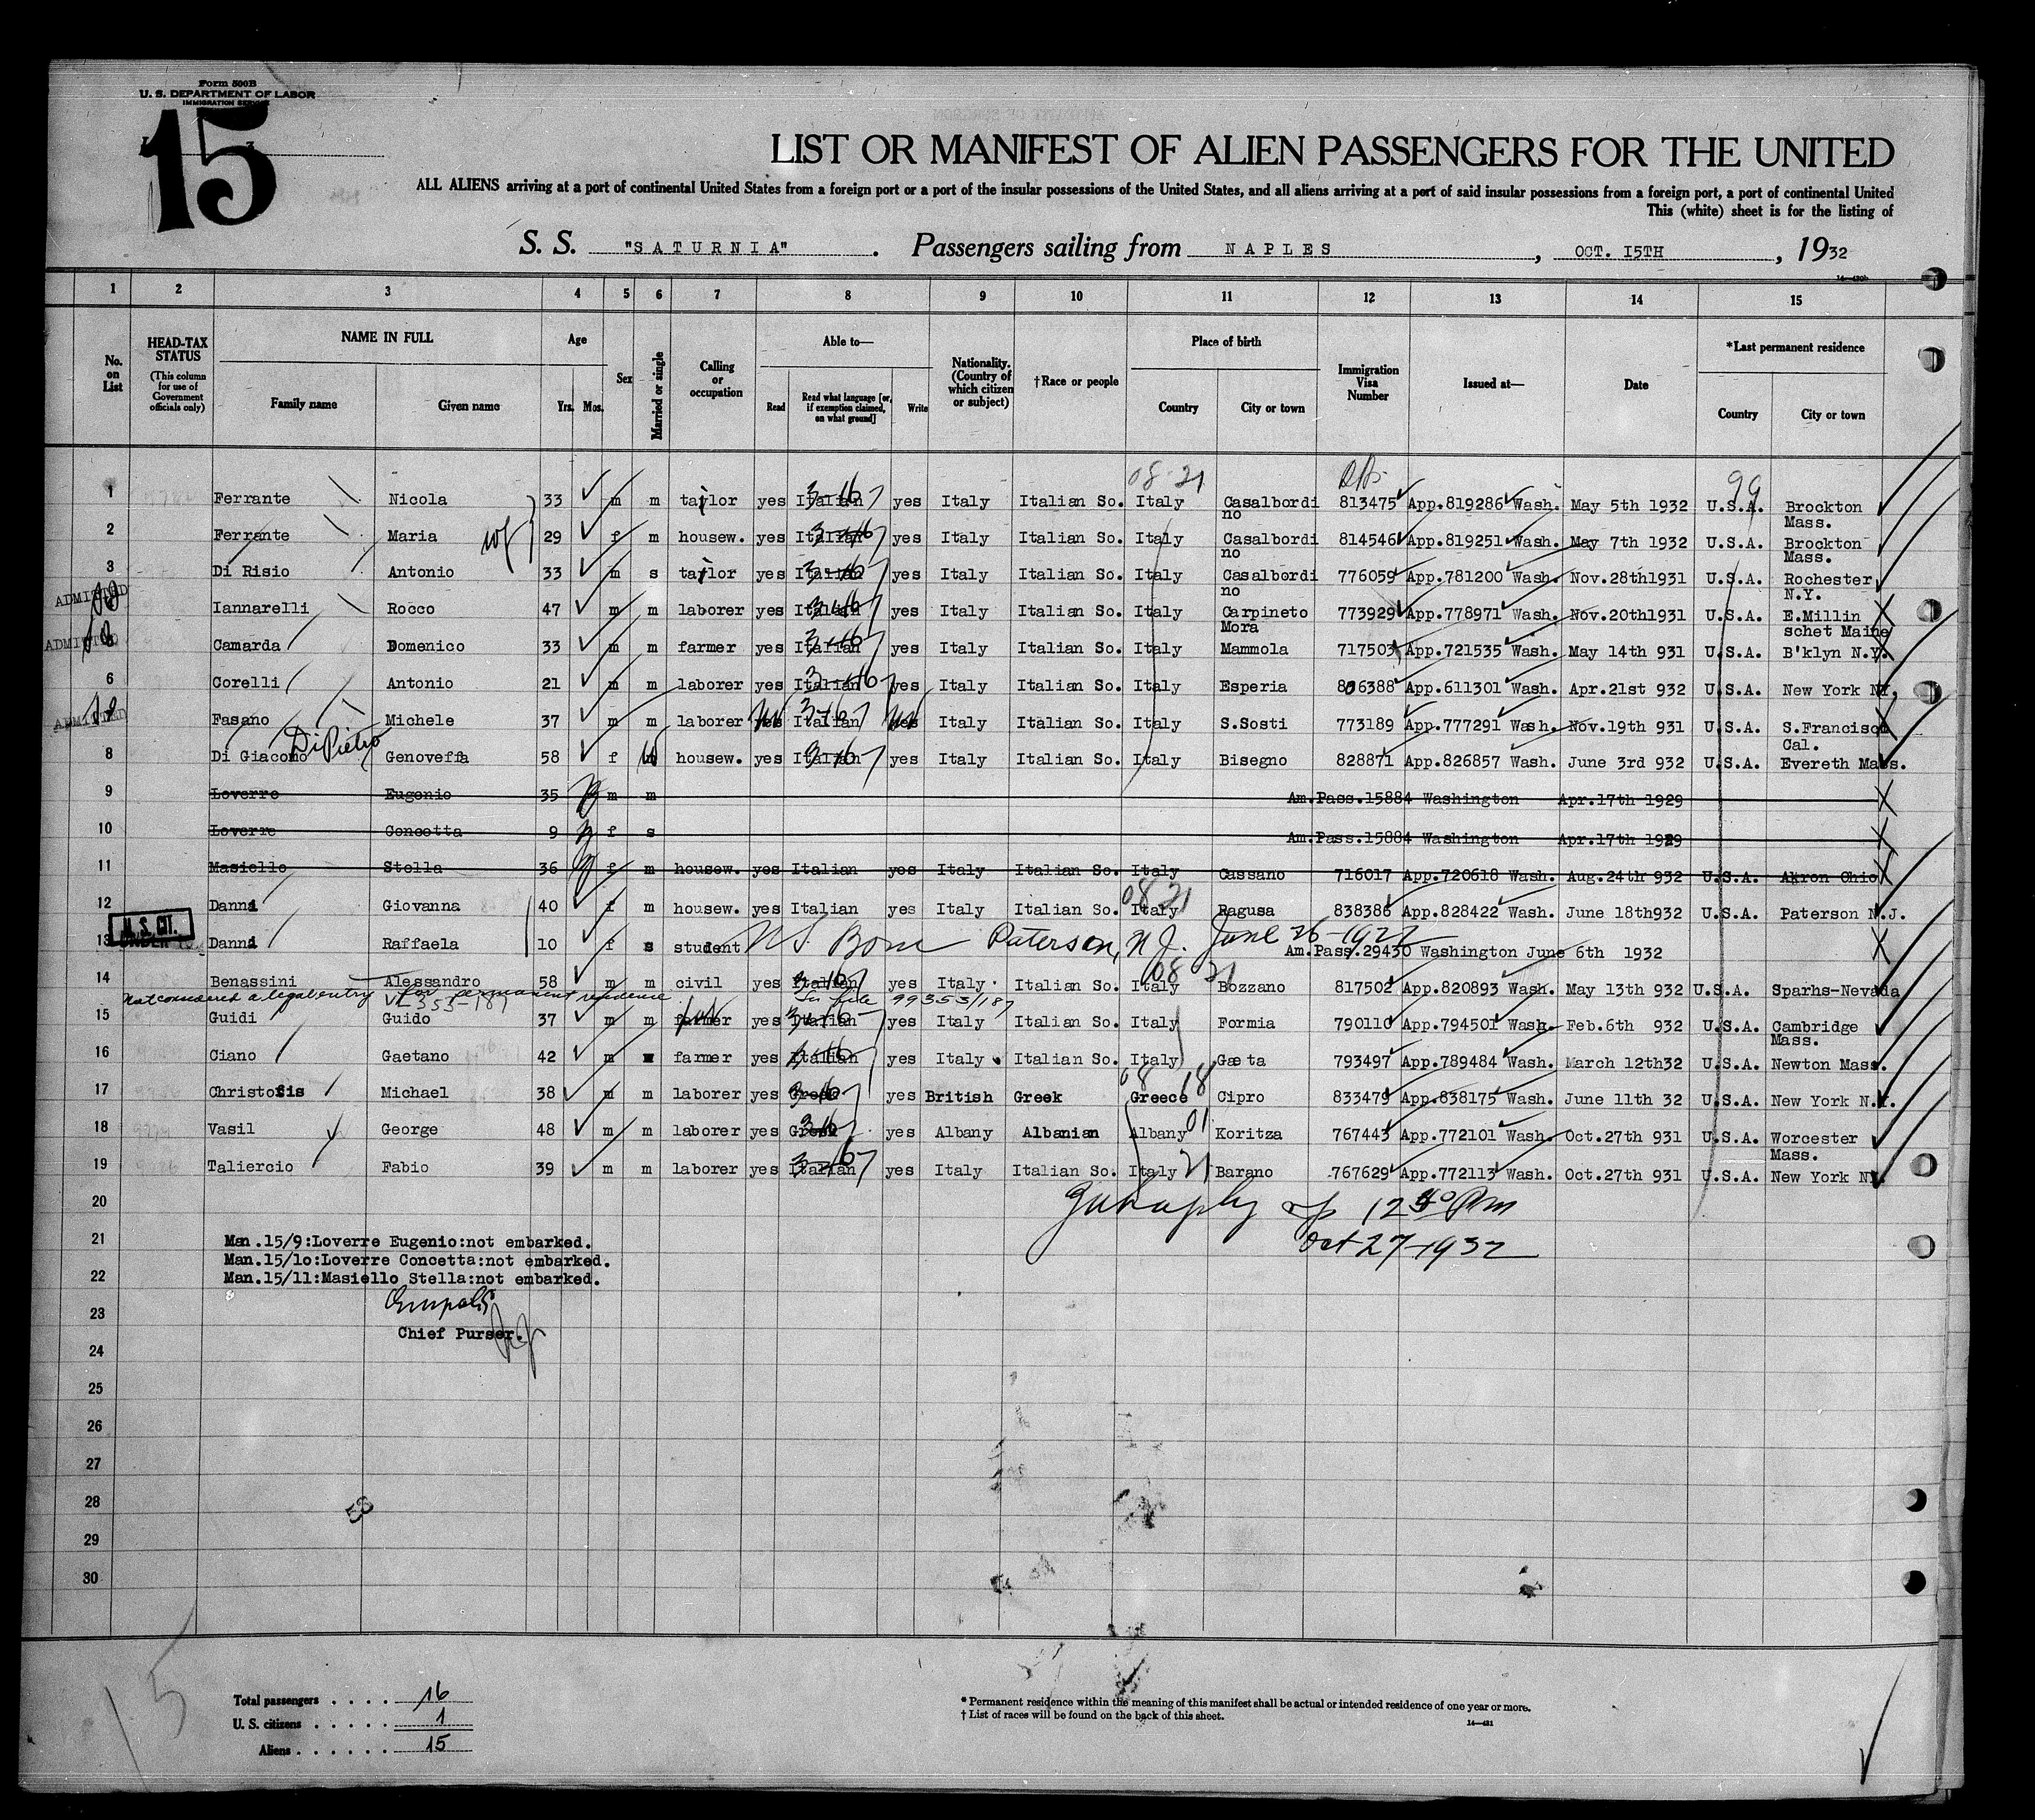 Form 500B
U. S. DEPARTMENT OF LABOR
IMMIGRATION SERVICE
15
LIST OR MANIFEST OF ALIEN PASSENGERS FOR THE UNITED
ALL ALIENS arriving at a port of continental United States from a foreign port or a port of the insular possessions of the United States, and all aliens arriving at a port of said insular possessions from a foreign port, a port of continental United
This (white) sheet is for the listing of
S. S. "SATURNIA". Passengers sailing from NAPLES, OCT. I5TH, 1932
1 2 3 4 5 6 7 8 9 10 11 12 13 14 15
No. on List HEAD-TAX STATUS (This column for use of Government officials only) NAME IN FULL Family name Given name Age Yrs. Mos. Sex Married or single Calling or occupation Able to— Read Read what language [or, if exemption claimed, on what ground] Write Nationality. (Country of which citizen or subject) †Race or people Place of birth Country City or town Immigration Visa Number Issued at— Date *Last permanent residence Country City or town
08 21 99
1 Ferrante Nicola 33 m m taylor yes Italian 3-16 yes Italy Italian So. Italy Casalbordi no 813475 App.819286 Wash. May 5th 1932 U.S.A. Brockton Mass.
2 Ferrante Maria wf 29 f m housew. yes Italian 3-16 yes Italy Italian So. Italy Casalbordi no 814546 App.819251 Wash. May 7th 1932 U.S.A. Brockton Mass.
3 Di Risio Antonio 33 m s taylor yes Italian 3-16 yes Italy Italian So. Italy Casalbordi no 776059 App.781200 Wash. Nov.28th1931 U.S.A. Rochester N.Y.
ADMITTED Iannarelli Rocco 47 m m laborer yes Italian 3-16 yes Italy Italian So. Italy Carpineto Mora 773929 App.778971 Wash. Nov.20th1931 U.S.A. E.Millin schet Maine
ADMITTED Camarda Domenico 33 m m farmer yes Italian 3-16 yes Italy Italian So. Italy Mammola 717503 App.721535 Wash. May 14th 931 U.S.A. B'klyn N.Y.
6 Corelli Antonio 21 m m laborer yes Italian 3-16 yes Italy Italian So. Italy Esperia 806388 App.611301 Wash. Apr.21st 932 U.S.A. New York NY.
ADMITTED Fasano Michele 37 m m laborer yes Italian 3-16 yes Italy Italian So. Italy S.Sosti 773189 App.777291 Wash. Nov.19th 931 U.S.A. S.Francisco Cal.
8 Di Giacomo DiPietro Genoveffa 58 f housew. yes Italian 3-16 yes Italy Italian So. Italy Bisegno 828871 App.826857 Wash. June 3rd 932 U.S.A. Evereth Mass.
9 Loverre Eugenio 35 m m Am.Pass.15884 Washington Apr.17th 1929
10 Loverre Concetta 9 f s Am.Pass.15884 Washington Apr.17th 1929
11 Masiello Stella 36 f m housew. yes Italian yes Italy Italian So. Italy Cassano 716017 App.720618 Wash. Aug.24th 932 U.S.A. Akron Ohio
12 Danni Giovanna 40 f m housew. yes Italian yes Italy Italian So. Italy 08 21 Ragusa 838386 App.828422 Wash. June 18th932 U.S.A. Paterson N.J.
U. S. CIT.
13 Danni Raffaela 10 f s student US Born Paterson, N.J. June 26-1922 Am.Pass.29430 Washington June 6th 1932
14 Benassini Alessandro 58 m m civil yes Italian 3-16 yes Italy Italian So. Italy 08 21 Bozzano 817502 App.820893 Wash. May 13th 932 U.S.A. Sparhs-Nevada
Not considered a legal entry for permanent residence In file 99353/187
15 Guidi Guido 37 m m farmer yes Italian 3-16 yes Italy Italian So. Italy Formia 790110 App.794501 Wash. Feb.6th 932 U.S.A. Cambridge Mass.
16 Ciano Gaetano 42 m farmer yes Italian 3-16 yes Italy Italian So. Italy Gaeta 793497 App.789484 Wash. March 12th32 U.S.A. Newton Mass.
17 Christofis Michael 38 m m laborer yes Greek 3-16 yes British Greek Greece 08 18 Cipro 833479 App.838175 Wash. June 11th 32 U.S.A. New York N.Y.
18 Vasil George 48 m m laborer yes Greek 3-16 yes Albany Albanian Albany 01 Koritza 767443 App.772101 Wash. Oct.27th 931 U.S.A. Worcester Mass.
19 Taliercio Fabio 39 m m laborer yes Italian 3-16 yes Italy Italian So. Italy 21 Barano 767629 App.772113 Wash. Oct.27th 931 U.S.A. New York NY.
20 12 30 PM
21 Man.15/9:Loverre Eugenio:not embarked. Oct 27-1932
Man.15/1o:Loverre Concetta:not embarked.
22 Man.15/11:Masiello Stella:not embarked.
23
Chief Purser.
24
25
26
27
28
29
30
15
Total passengers . . . . 16
U. S. citizens . . . . . 1
Aliens . . . . . . 15
* Permanent residence within the meaning of this manifest shall be actual or intended residence of one year or more.
† List of races will be found on the back of this sheet.
14—431